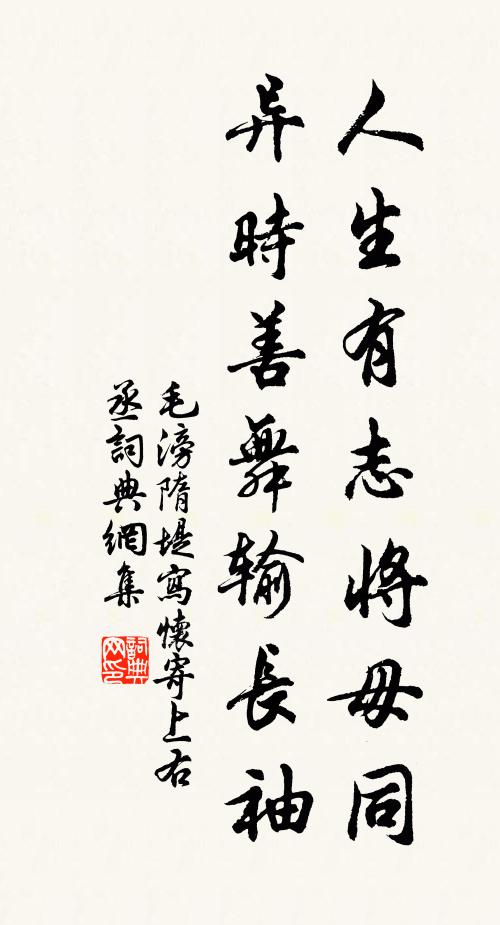 人生有志將毋同
异時善舞输長袖
毛滂隋堤寫懷寄上右
丞詞典網集
詞典網印